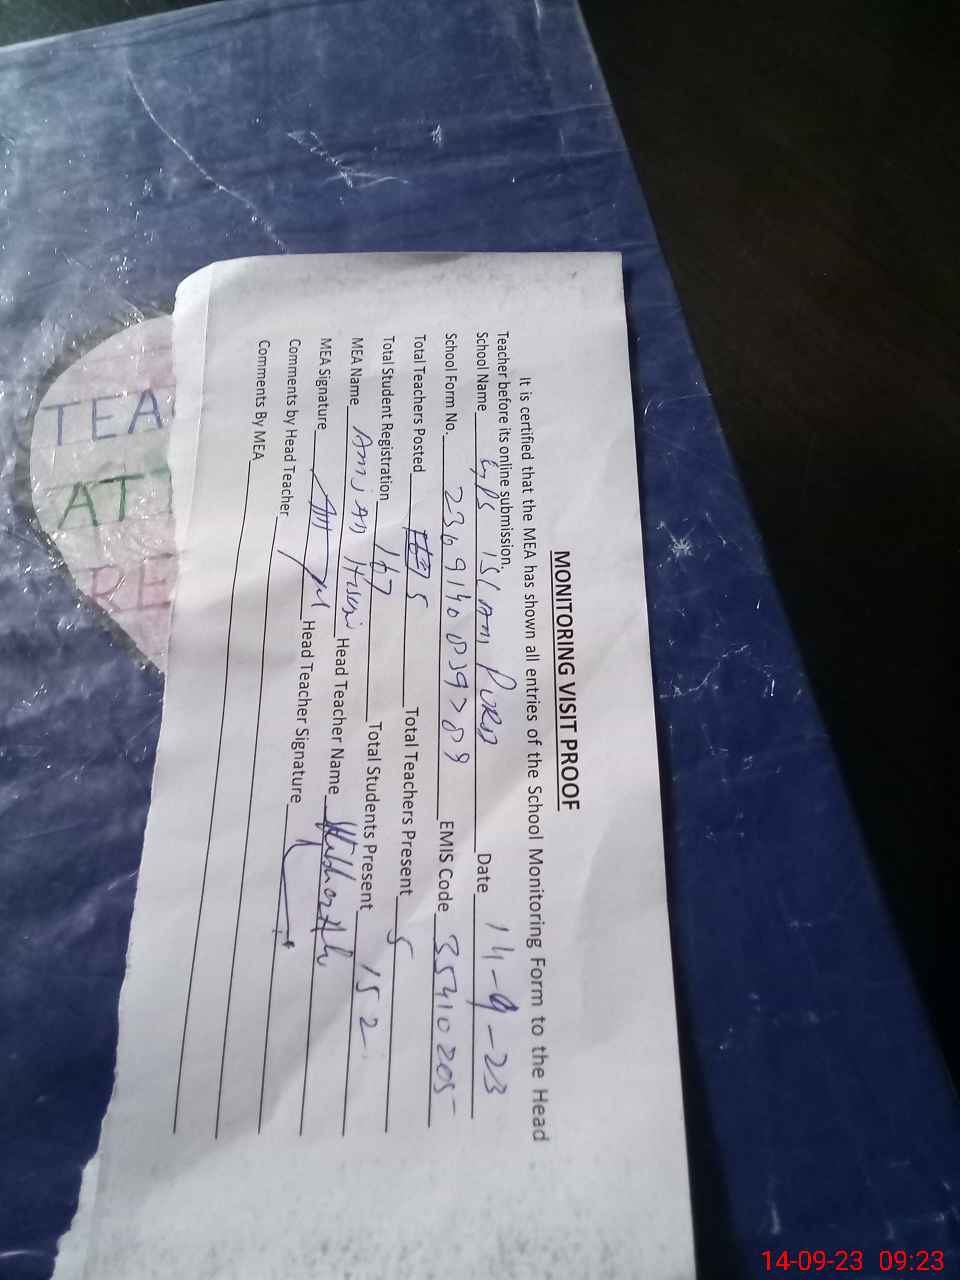 MONITORING VISIT PROOF
It is certified that the MEA has shown all entries of the School Monitoring Form to the Head
Teacher before its online submission.
School Name GPS Islam Pura Date 14-9-23
School Form No. EMIS Code 35410205
Total Teachers Posted 5 Total Teachers Present 5
Total Student Registration 167 Total Students Present 152
MEA Name Head Teacher Name
MEA Signature Head Teacher Signature
Comments by Head Teacher
Comments By MEA
TEA
AT
RE
14-09-23 09:23